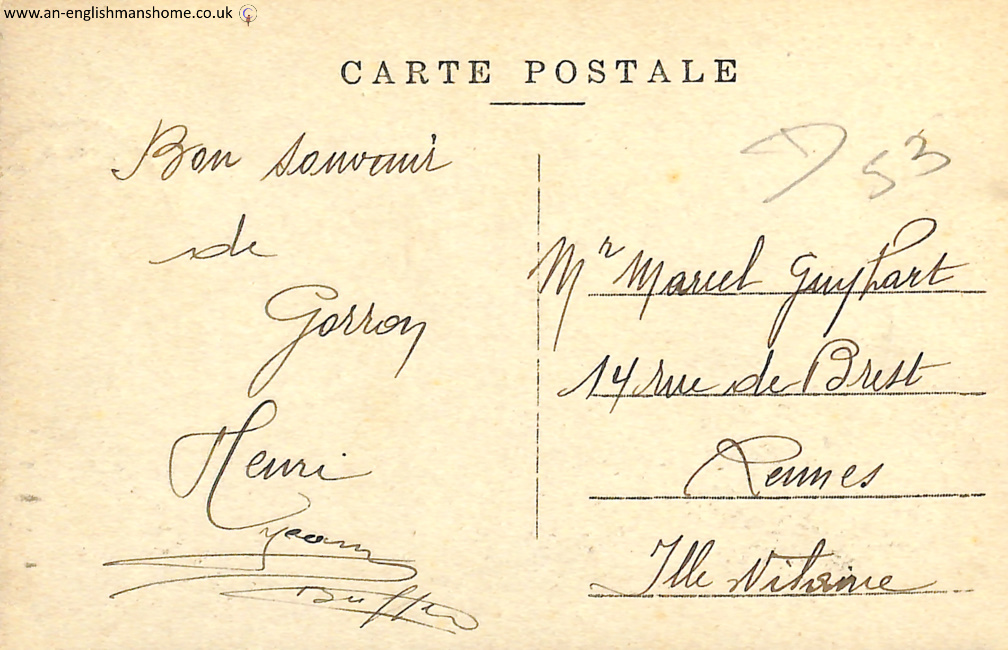 www.an-englishmanshome.co.uk
CARTE POSTALE
Bon souvenir
de
Gorron
Henri
53
Mr Marcel Guyhart
14 rue de Brest
Rennes
Ille Vilaine